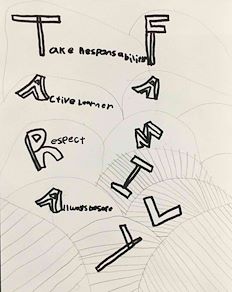 Take Responsabilities
Active Learner
Respect
Allways be safe
FAMILY